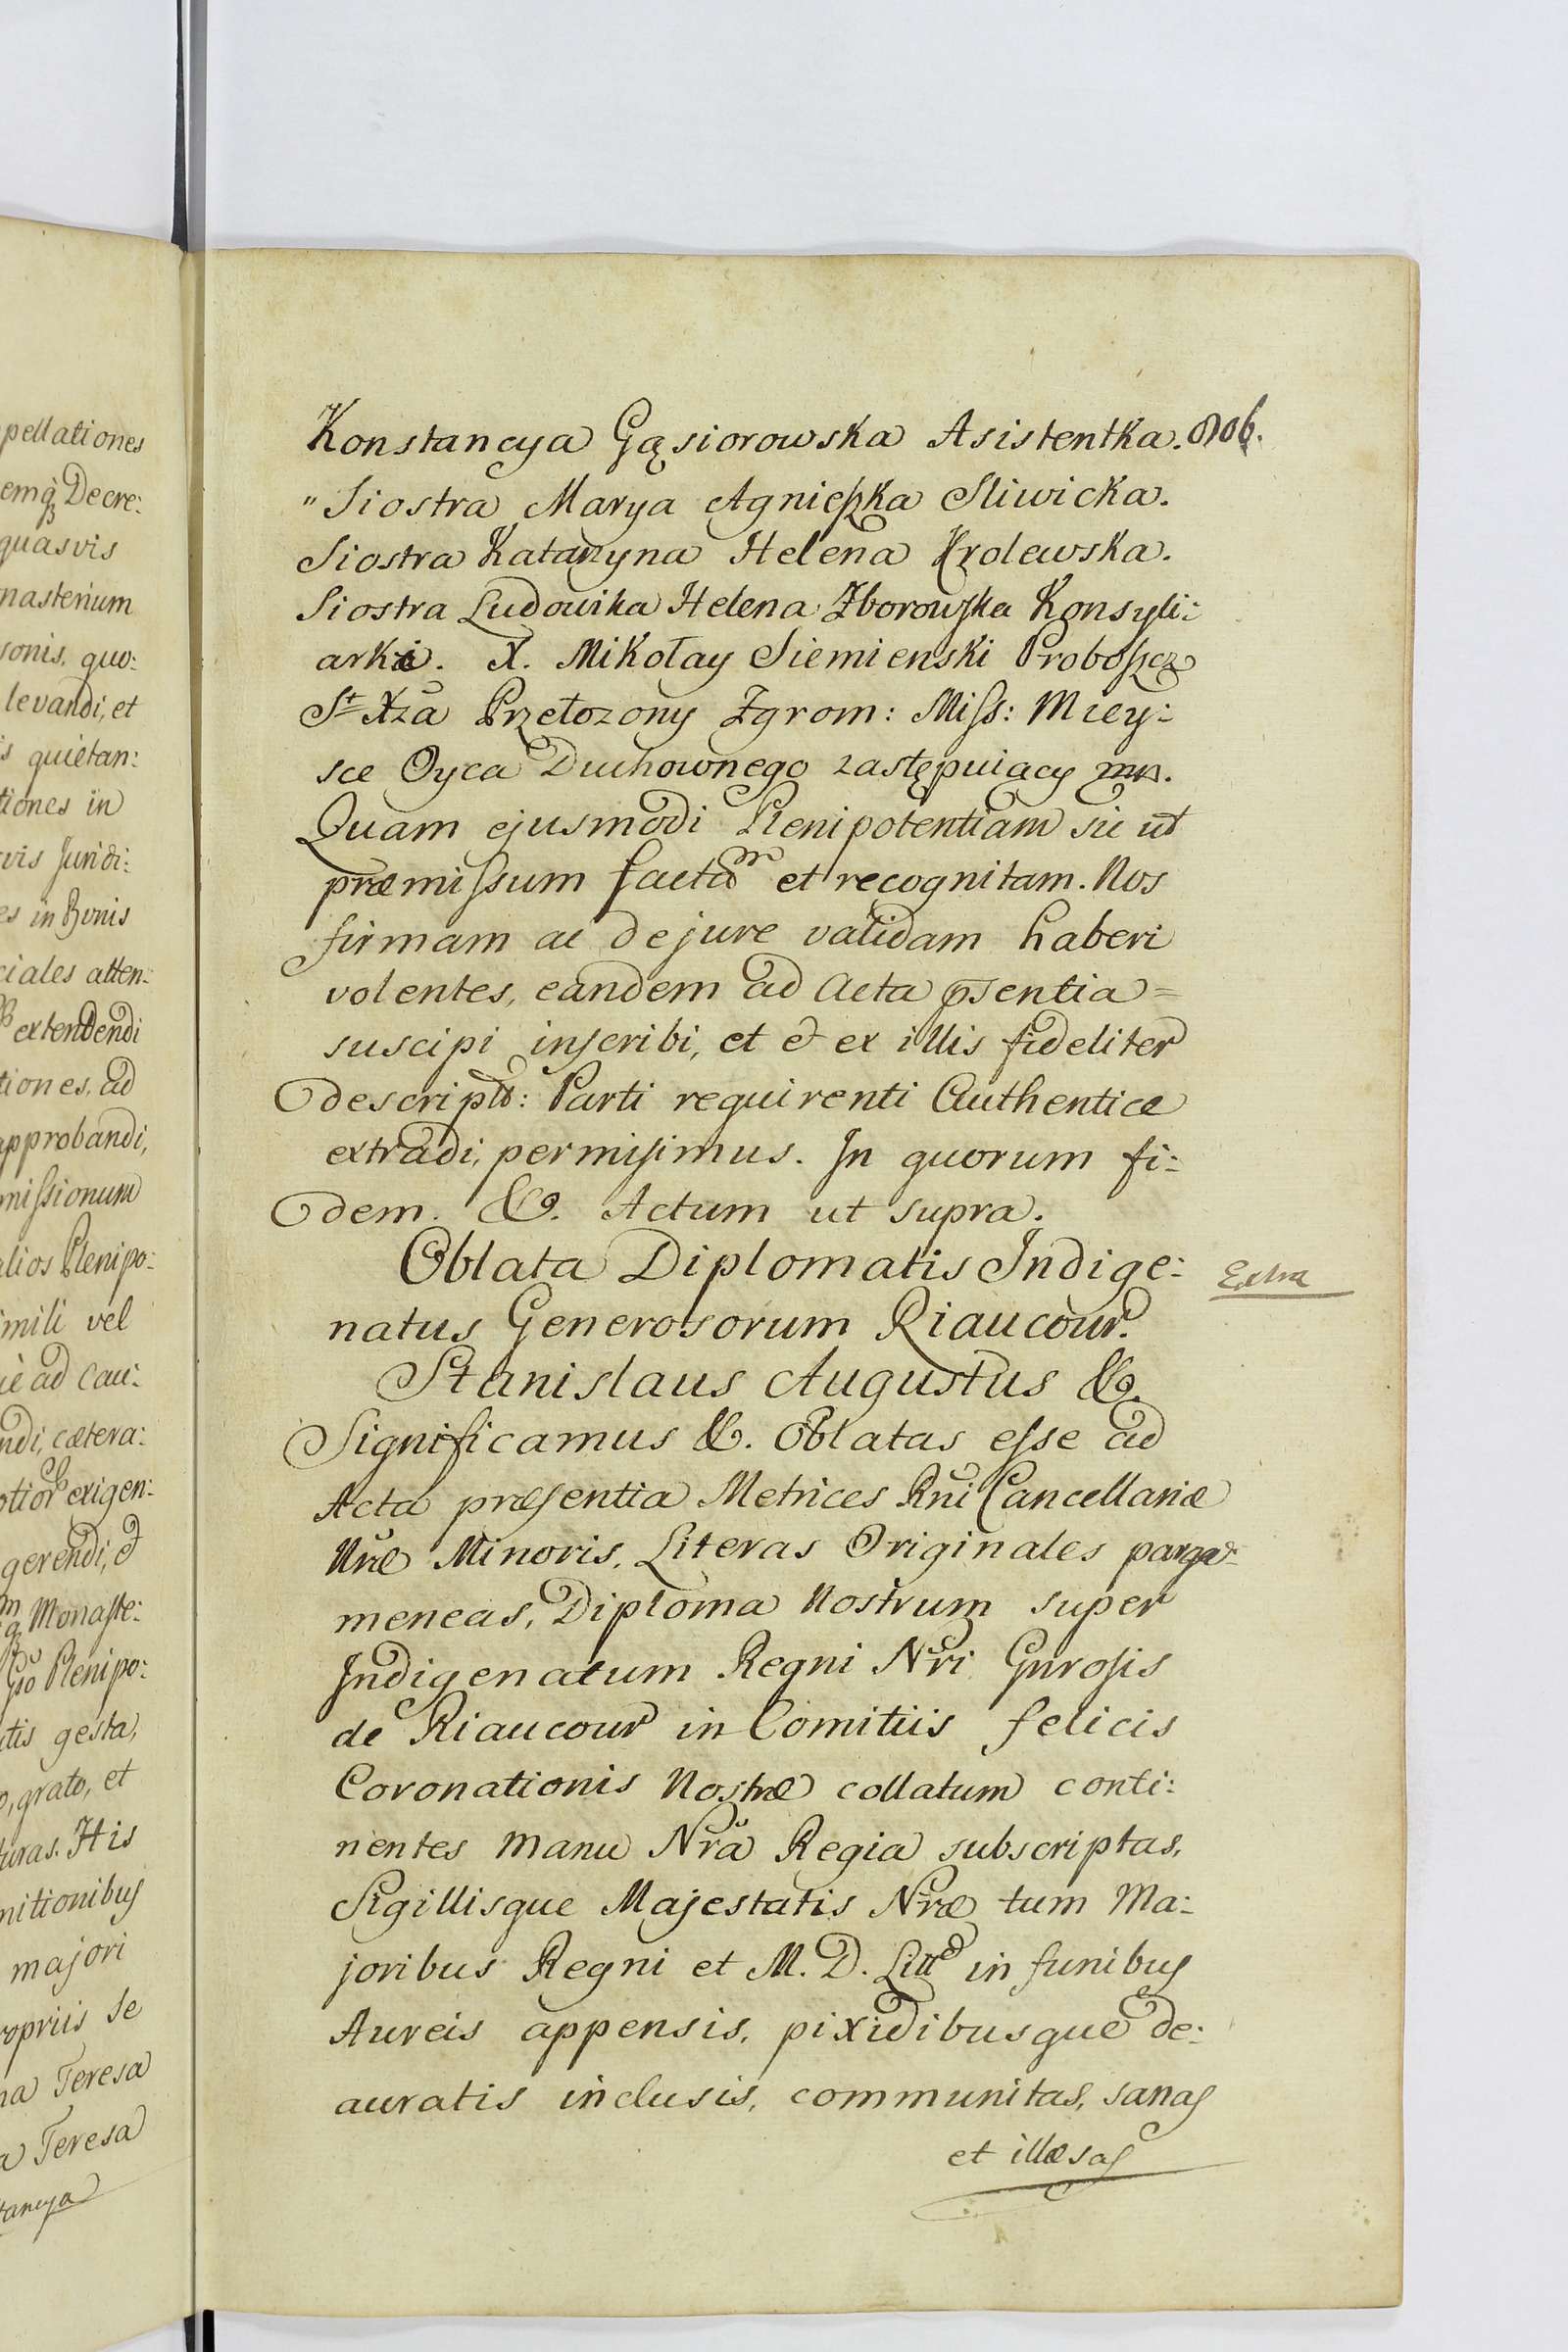 pellationes
emq̃ Decre:
quasvis
nasterium
sonis, quo:
levandi, et
s quietan:
tiones in
vis Juridi:
es in Bonis
ciales atten:
extendendi
tiones, ad
approbandi,
missionum
alios Plenipo:
imili vel
ie ad Cau:
ndi, cætera:
exigen:
gerendi, &
Monaste:
Plenipo:
tis gesta,
o, grato, et
turas. His
nitionibus
majori
ropriis se
na Teresa
a Teresa
tancya
Konstancya Gąsiorowska Asistentka. 906.
" Siostra Marya Agnieszka Sliwicka.
Siostra Katarzyna Helena Krolewska.
Siostra Ludowika Helena Zborowska Konsyli:
arka. X. Mikołay Siemienski Proboszcz
St Xza Przełozony Zgrom: Miss: Miey:
sce Oyca Duchownego zastępuiący mp.
Quam ejusmodi Plenipotentiam sic ut
præmissum factam et recognitam. Nos
firmam ac de jure validam haberi
volentes, eandem ad Acta psentia =
suscipi inscribi, et & ex illis fideliter
descript: Parti requirenti Authentice
extradi, permisimus. In quorum fi:
dem. &c. Actum ut supra.
Oblata Diplomatis Indige:
natus Generosorum Riaucour.
Extra
Stanislaus Augustus &c.
Significamus &c. Oblatas esse ad
Acta præsentia Metrices Rni Cancellariæ
Nræ Minoris, Literas Originales parga:
meneas, Diploma Nostrum super
Indigenatum Regni Nri Gnrosis
de Riaucour in Comitiis felicis
Coronationis Nostræ collatum conti:
nentes manu Nra Regia subscriptas,
Sigillisque Majestatis Nræ tum Ma:
joribus Regni et M. D. Litt in funibus
Aureis appensis, pixidibusque de:
auratis inclusis, communitas, sanas
et illæsas